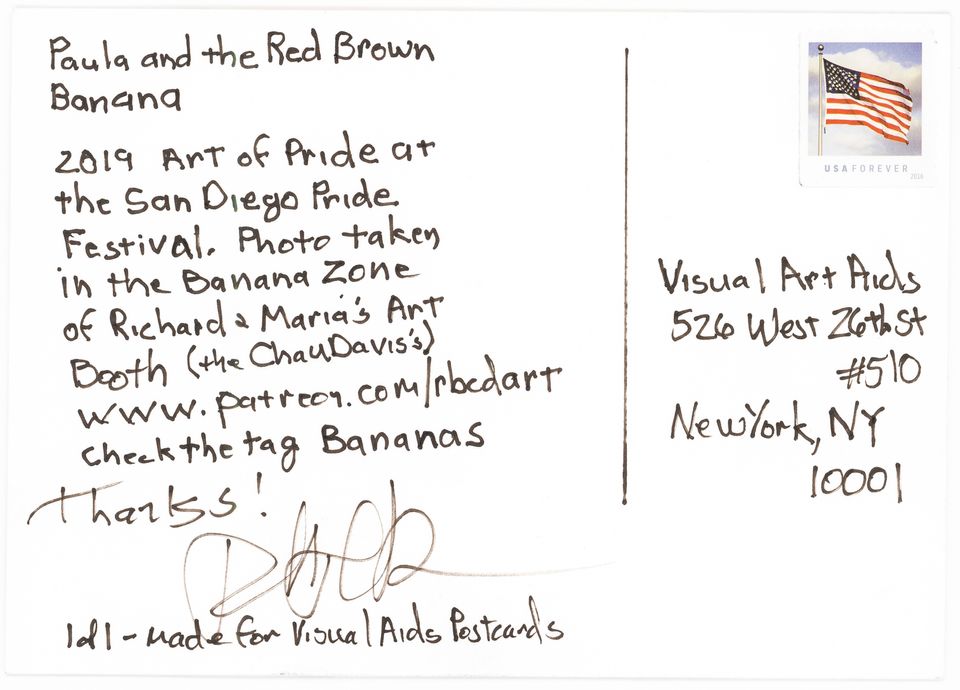 Paula and the Red Brown
Banana
2019 Art of Pride at
the San Diego Pride
Festival. Photo taken
in the Banana Zone
of Richard & Maria's Art
Booth (the ChauDavis's)
www.patreon.com/rbcdart
check the tag Bananas
Thanks!
1 of 1 - made for Visual Aids Postcards
USA FOREVER
2016
Visual Art Aids
526 West 26th St
#510
New York, NY
10001